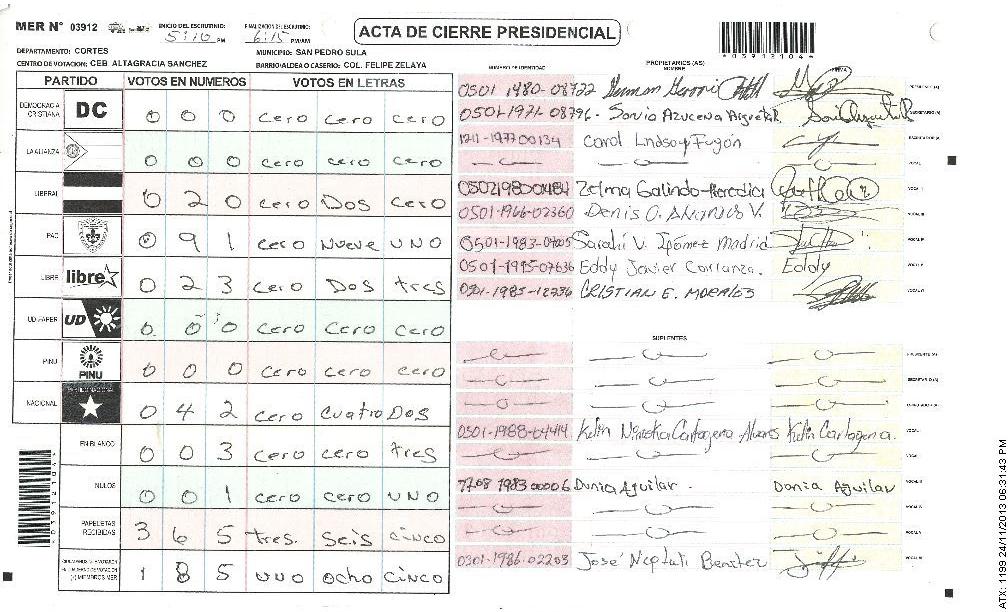 MER N° 03912 INICIO DEL ESCRUTINIO: 5:10 PM FINALIZACION DEL ESCRUTINIO: 6:15 PM/AM
ACTA DE CIERRE PRESIDENCIAL
*03912104*
DEPARTAMENTO: CORTES MUNICIPIO: SAN PEDRO SULA
CENTRO DE VOTACION: CEB. ALTAGRACIA SANCHEZ BARRIO/ALDEA O CASERIO: COL. FELIPE ZELAYA
PARTIDO VOTOS EN NUMEROS VOTOS EN LETRAS
DEMOCRACIA CRISTIANA DC 0 0 0 cero cero cero
LA ALIANZA 0 0 0 cero cero cero
LIBERAL 0 2 0 cero Dos cero
PAC 0 9 1 cero Nueve UNO
LIBRE libre 0 2 3 cero Dos tres
UD FAPER UD 0 0 0 cero cero cero
PINU PINU 0 0 0 cero cero cero
NACIONAL 0 4 2 cero cuatro Dos
EN BLANCO 0 0 3 cero cero tres
NULOS 0 0 1 cero cero UNO
PAPELETAS RECIBIDAS 3 6 5 tres. seis cinco
(+) MIEMBROS MER 1 8 5 UNO ocho cinco
NUMERO DE IDENTIDAD PROPIETARIOS (AS) NOMBRE FIRMA
0501 1480-08722 PRESIDENTE (A)
0501-1971-08796- Sonia Azucena SECRETARIO (A)
1211-1977 00134 Carol Lindsay Fugón ESCRUTADOR (A)
VOCAL I
0502198000484 Zelma Galindo Heredia VOCAL II
0501-1966-02360 Denis O. Alvarado V. VOCAL III
0501-1983-09005 Sarahí V. Gómez Madrid VOCAL IV
0501-1995-07636 Eddy Javier Carranza. Eddy VOCAL V
0501-1985-12736 CRISTIAN E. MORALES VOCAL VI
SUPLENTES
PRESIDENTE (A)
SECRETARIO (A)
ESCRUTADOR (A)
0501-1988-04414 Kelin Ninoska Cartagena Alvares Kelin Cartagena. VOCAL I
VOCAL II
1708 1983 00006 Dunia Aguilar. Dunia Aguilar VOCAL III
VOCAL IV
VOCAL V
0301-1986-02203 José Neptali Benitez VOCAL VI
ATX: 1199 24/11/2013 06:31:43 PM